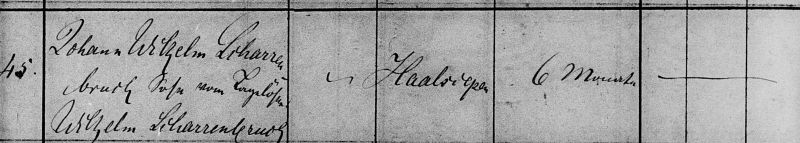 45. Johann Wilhelm Scharren
bruch Sohn vom Tagelöhner
Wilhelm Scharrenbruch
Haalsiepen
6 Monate